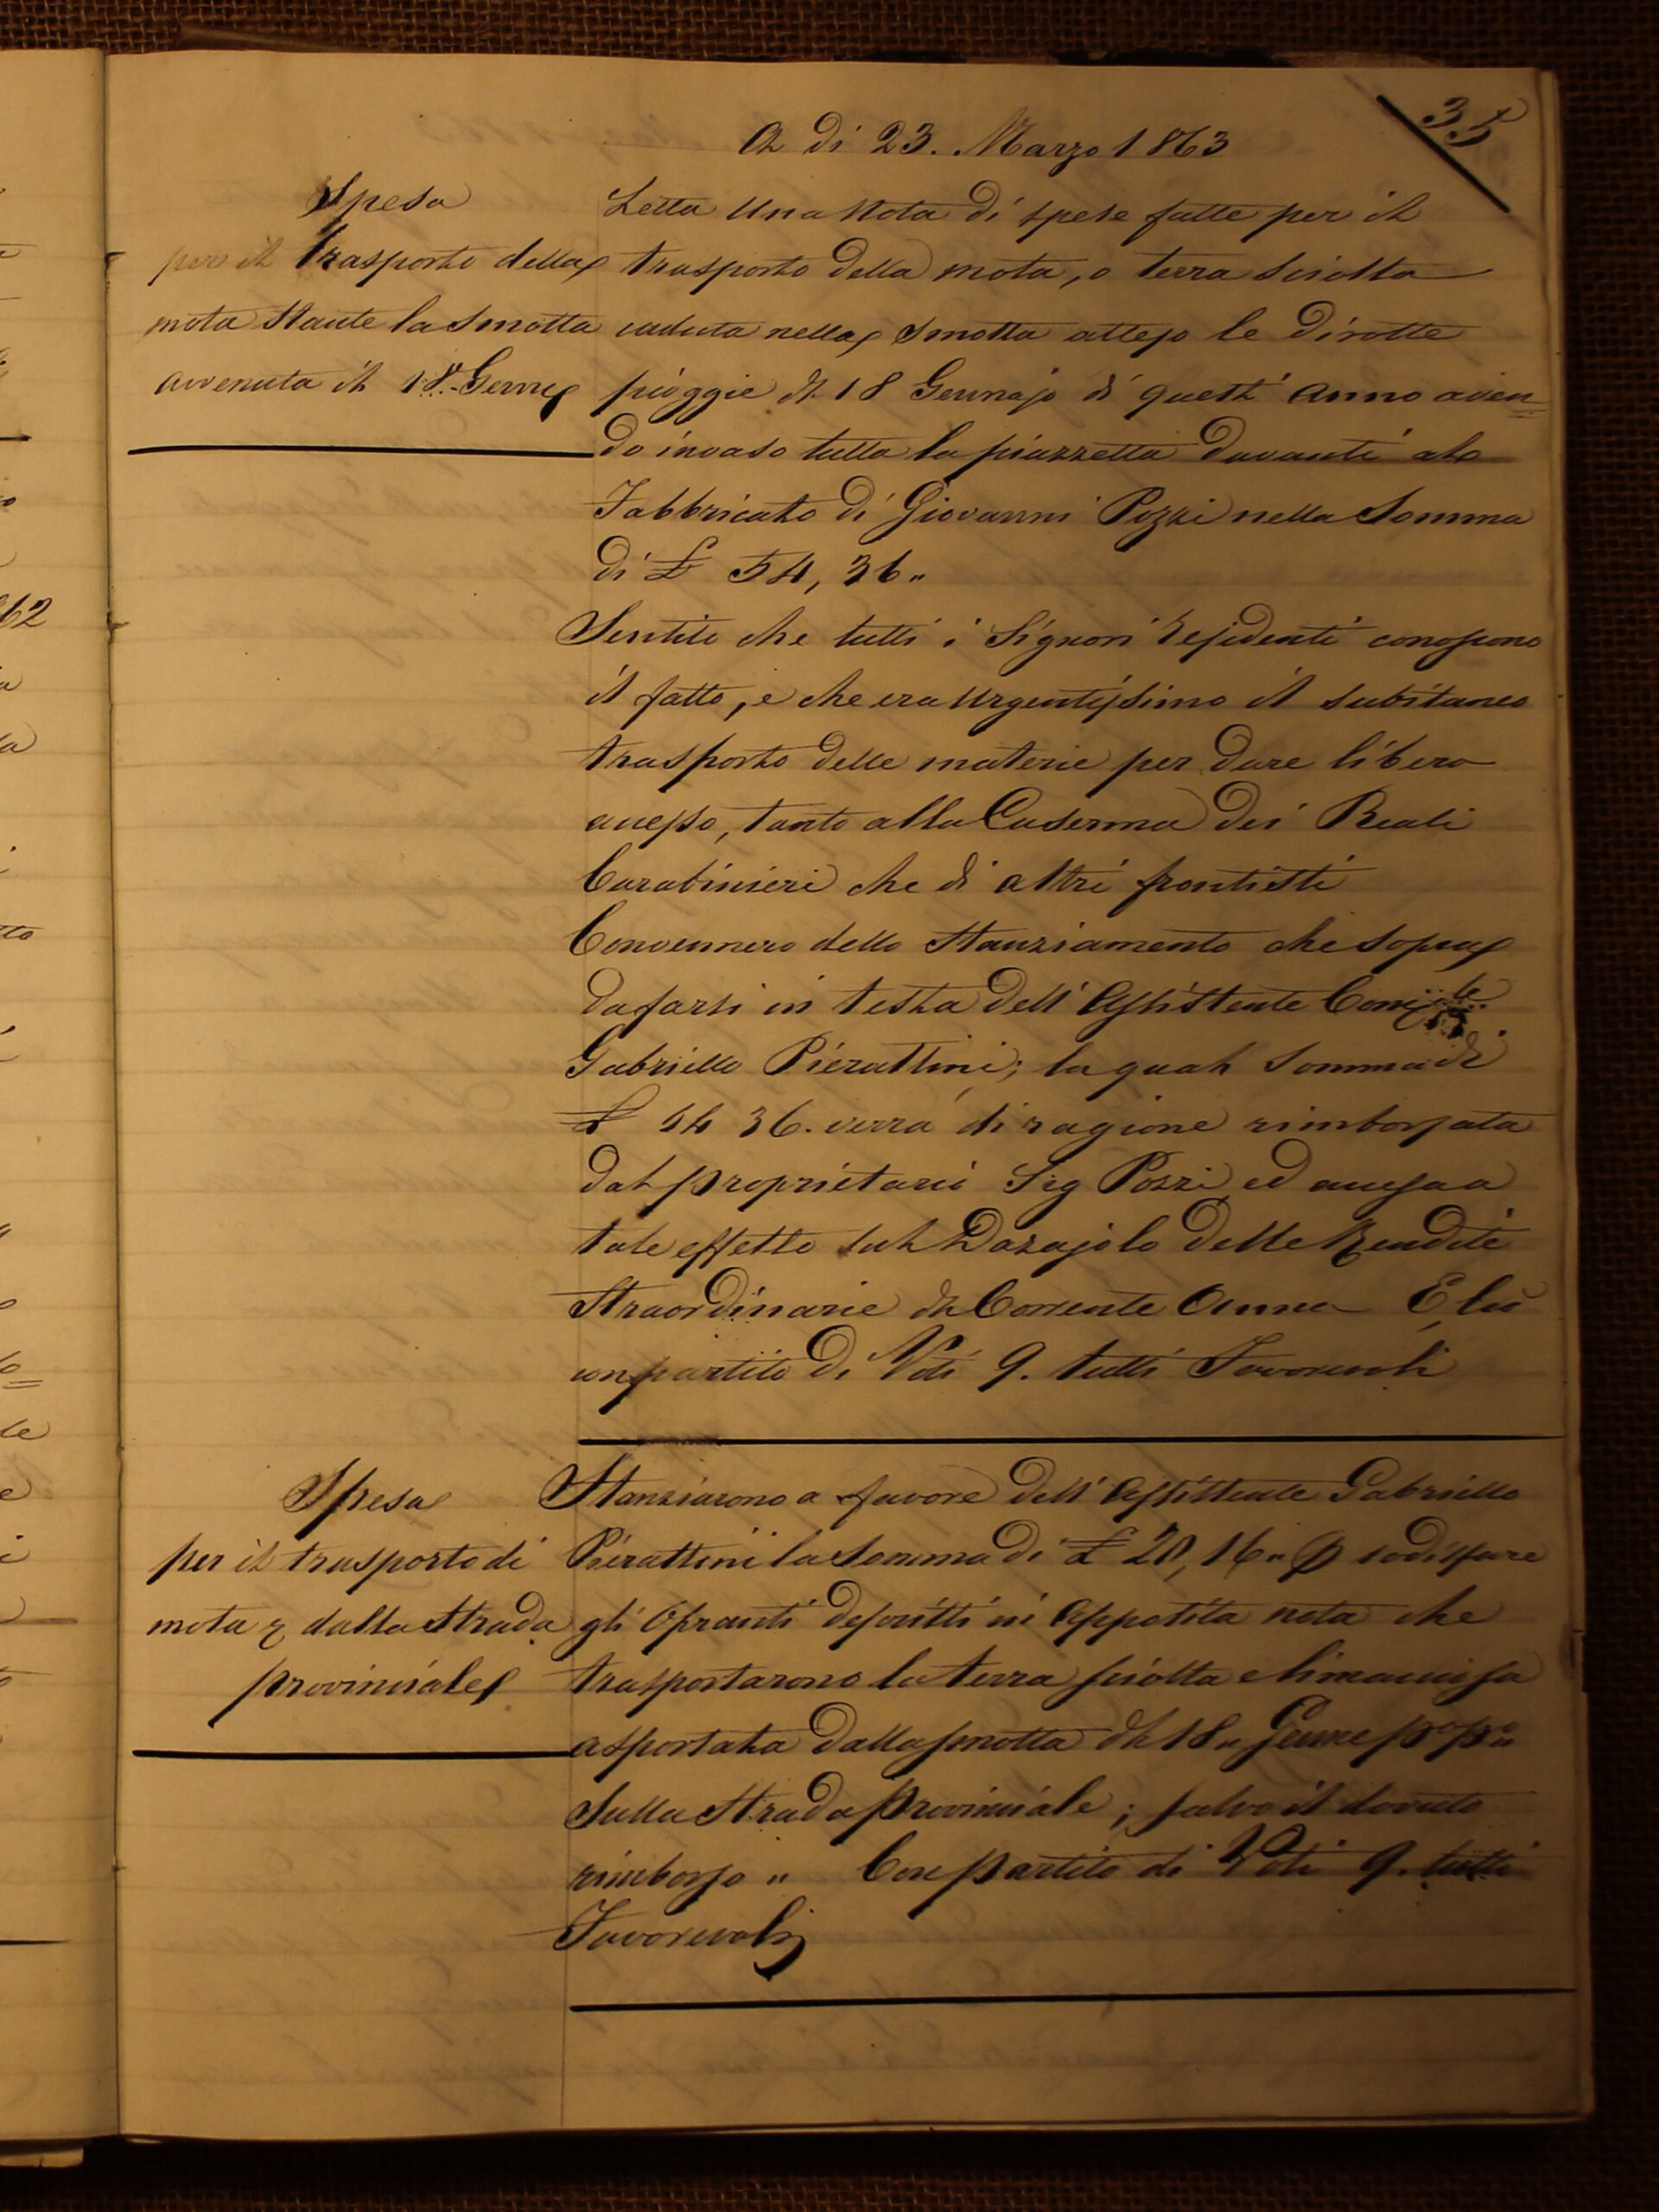 35
A di 23. Marzo 1863
Spesa
per il trasporto della
mota stante la smotta
avvenuta il 18. Genn
Letta una Nota di spese fatte per il
trasporto della mota, o terra sciolta
caduta nella smotta atteso le dirotte
pioggie del 18 Gennajo di quest' anno aven
do invaso tutta la piazzetta davanti al
Fabbricato di Giovanni Pozzi nella Somma
di £ 54, 36 "
Sentito che tutti i Signori Residenti conoscono
il fatto, e che era urgentissimo il subitaneo
trasporto delle materie per dare libero
accesso, tanto alla Caserma dei Reali
Carabinieri che di altri frontisti
Convennero dello Stanziamento che sopra
da farsi in testa dell' Assistente
Gabriello Pierattini; la qual Somma di
£ 54 36. verrà di ragione rimborsata
dal proprietario Sig Pozzi, ed accesa a
tale effetto sul Dazajolo delle Rendite
Straordinarie del Corrente Anno E, ciò
con partito di Voti 9. tutti Favorevoli
Spesa
per il trasporto di
mota dalla Strada
provinciale
Stanziarono a favore dell' Assistente Gabriello
Pierattini la Somma di £ 20, 16 " p sodisfare
gli Opranti descritti in Apposita nota che
trasportarono la terra sciolta e limacciosa
asportata dalla smotta del 18 " Genn p°p°
Sulla Strada Provinciale; salvo il dovuto
rimborso " Con Partito di Voti 9. tutti
Favorevoli